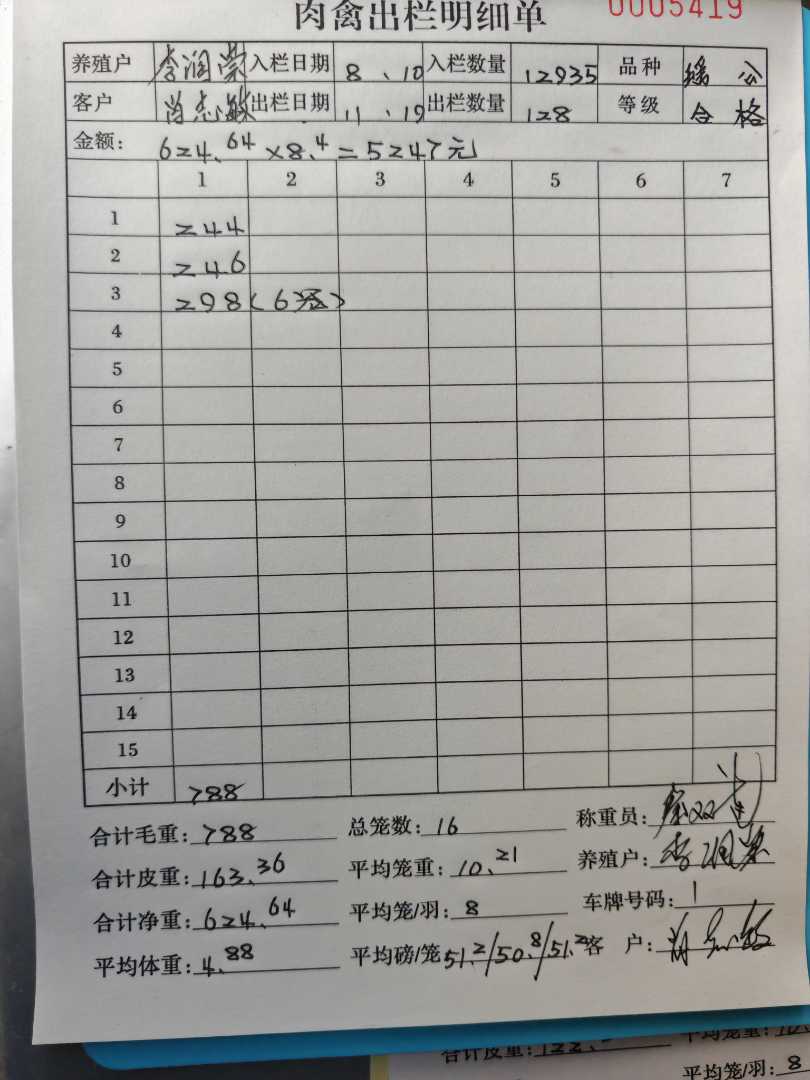 肉禽出栏明细单 0005419
养殖户 李润荣 入栏日期 8、10 入栏数量 12935 品种 瑶公
客户 肖志敏 出栏日期 11、19 出栏数量 128 等级 合格
金额: 624.64×8.4=5247元
1 2 3 4 5 6 7
1 244
2 246
3 298(6笼)
4
5
6
7
8
9
10
11
12
13
14
15
小计 788
合计毛重: 788 总笼数: 16 称重员:
合计皮重: 163.36 平均笼重: 10.21 养殖户: 李润荣
合计净重: 624.64 平均笼/羽: 8 车牌号码: 1
平均体重: 4.88 平均磅/笼 51.2/50.8/51.2 客户: 肖志敏
合计皮重: 122. 平均笼重: 10.
平均笼/羽: 8